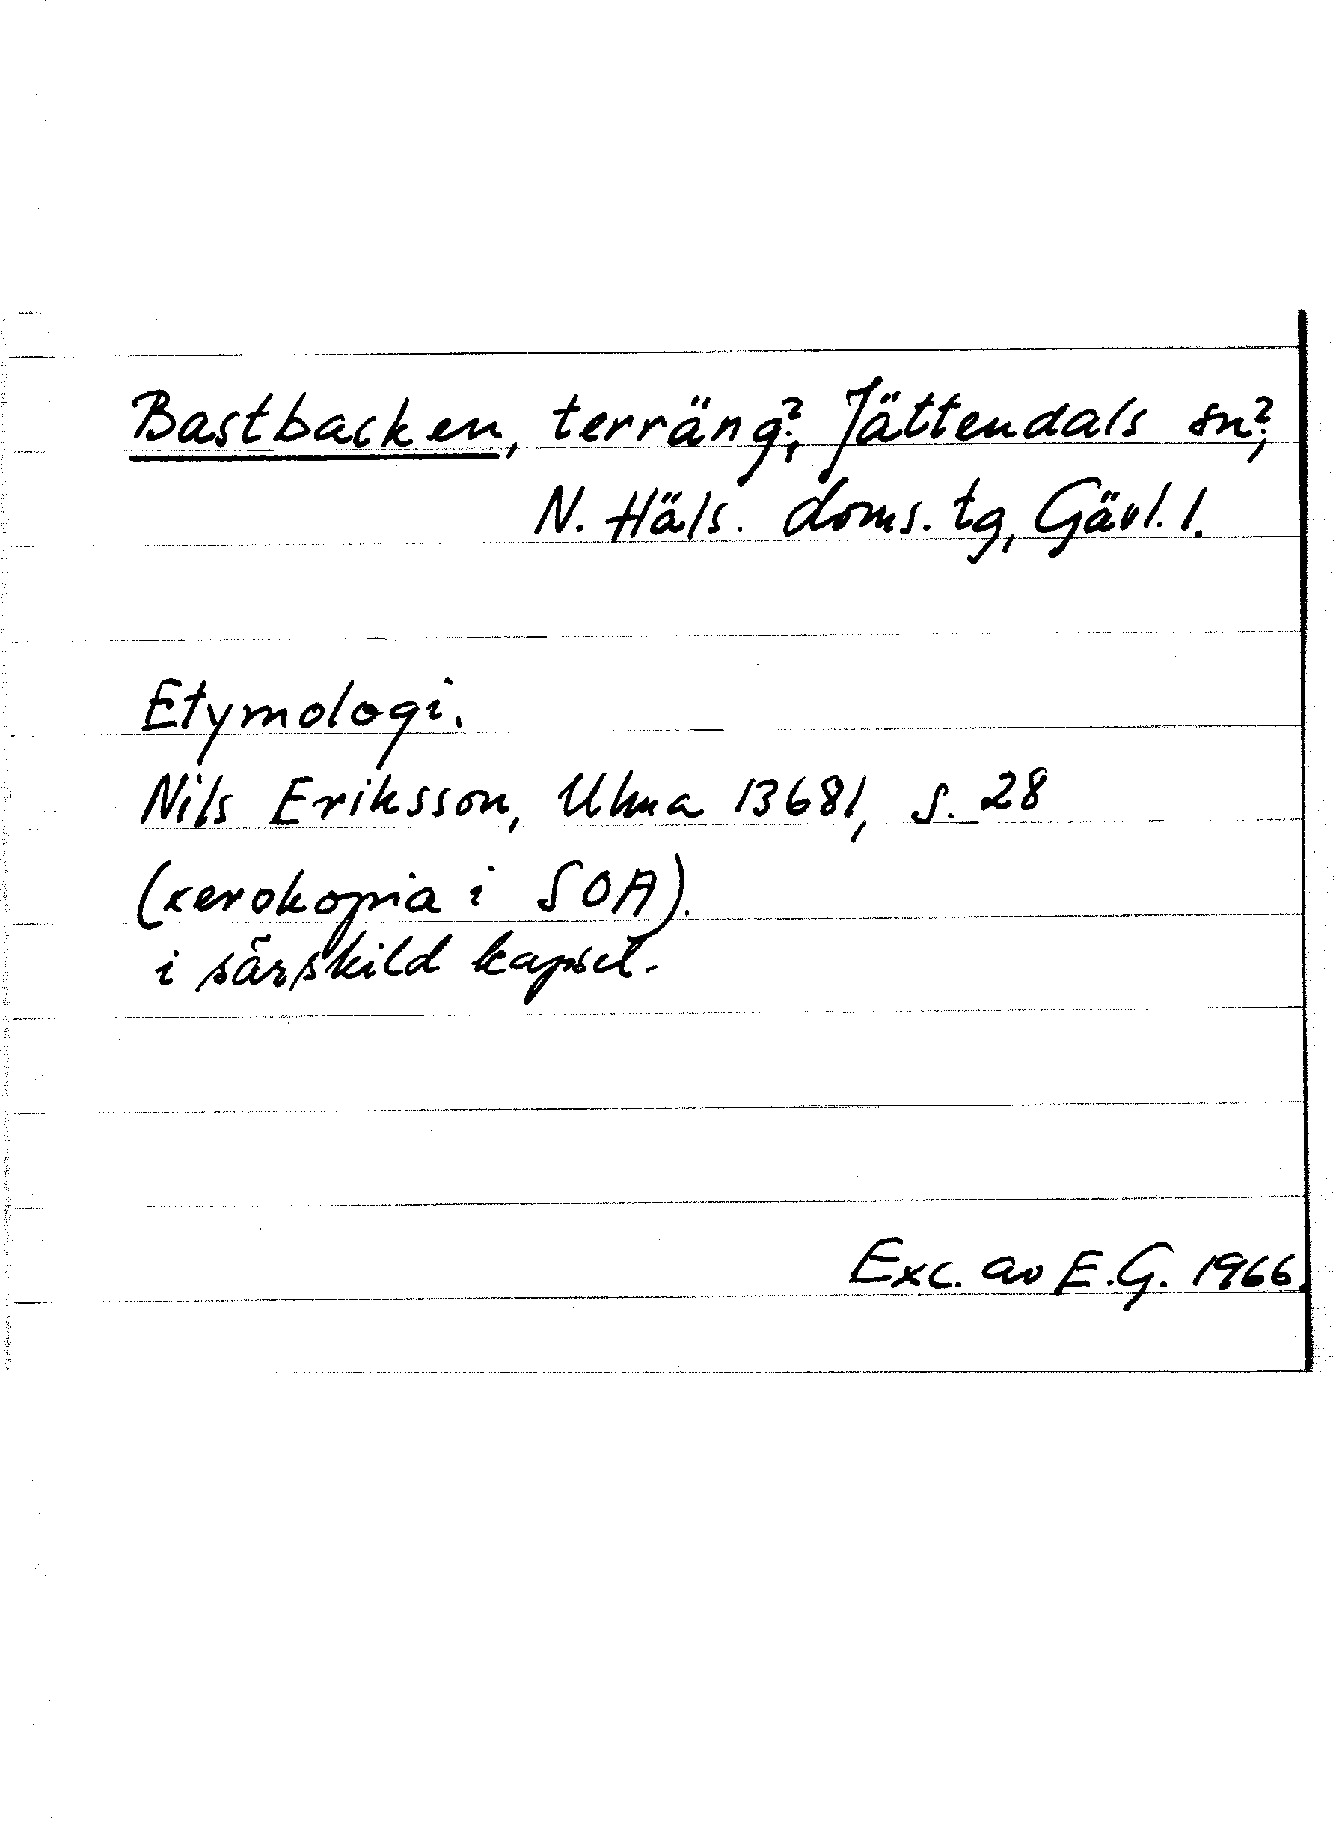 Bastbacken, terräng?, Jättendals sn?,
N. Häls. doms. tg, Gävl. l.
Etymologi.
Nils Eriksson, Ulma 13681, s. 28
(xerokopia i SOA).
i särskild kapsel.
Exc. av E.G. 1966.